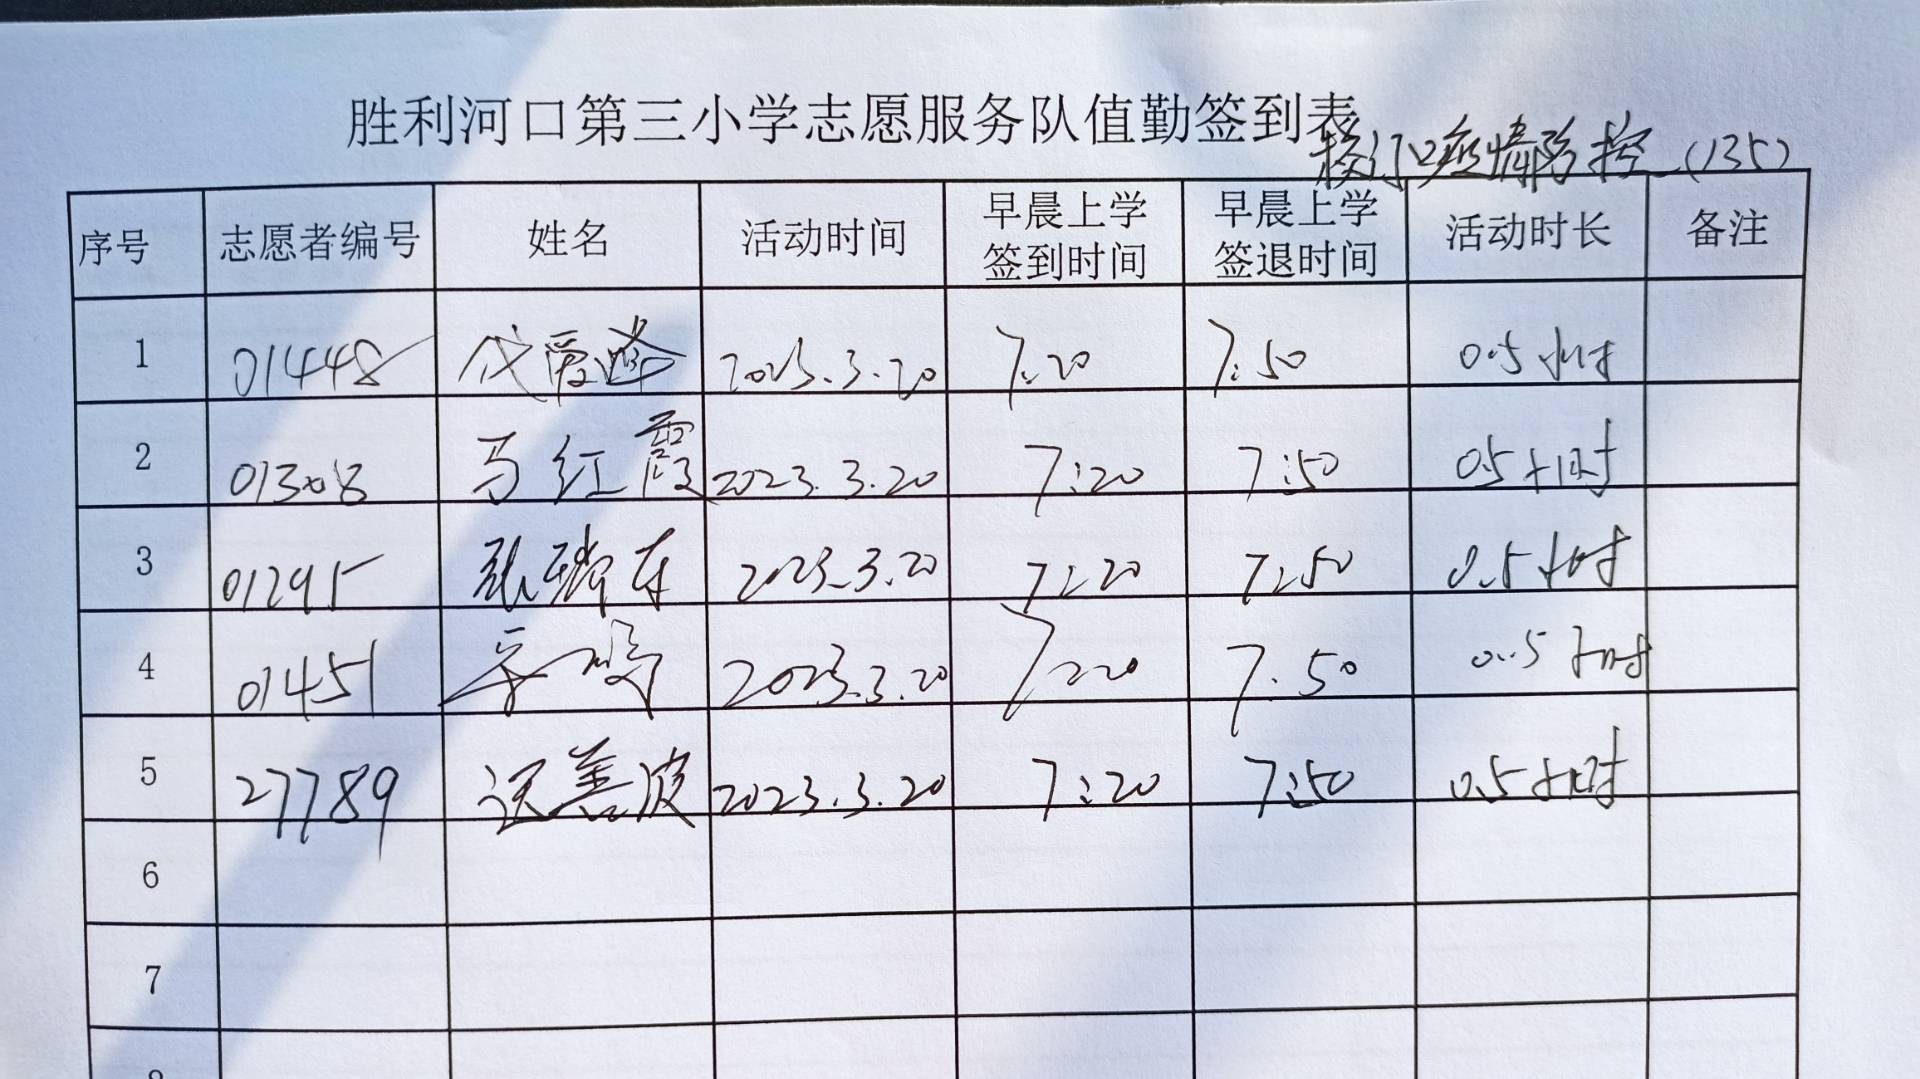 胜利河口第三小学志愿服务队值勤签到表
校门口疫情防控(135)
序号 志愿者编号 姓名 活动时间 早晨上学签到时间 早晨上学签退时间 活动时长 备注
1 01448 代爱 2023.3.20 7:20 7:50 0.5小时
2 01308 马红霞 2023.3.20 7:20 7:50 0.5小时
3 01295 张瑞存 2023.3.20 7:20 7:50 0.5小时
4 01451 2023.3.20 7:20 7:50 0.5小时
5 27789 善波 2023.3.20 7:20 7:50 0.5小时
6
7